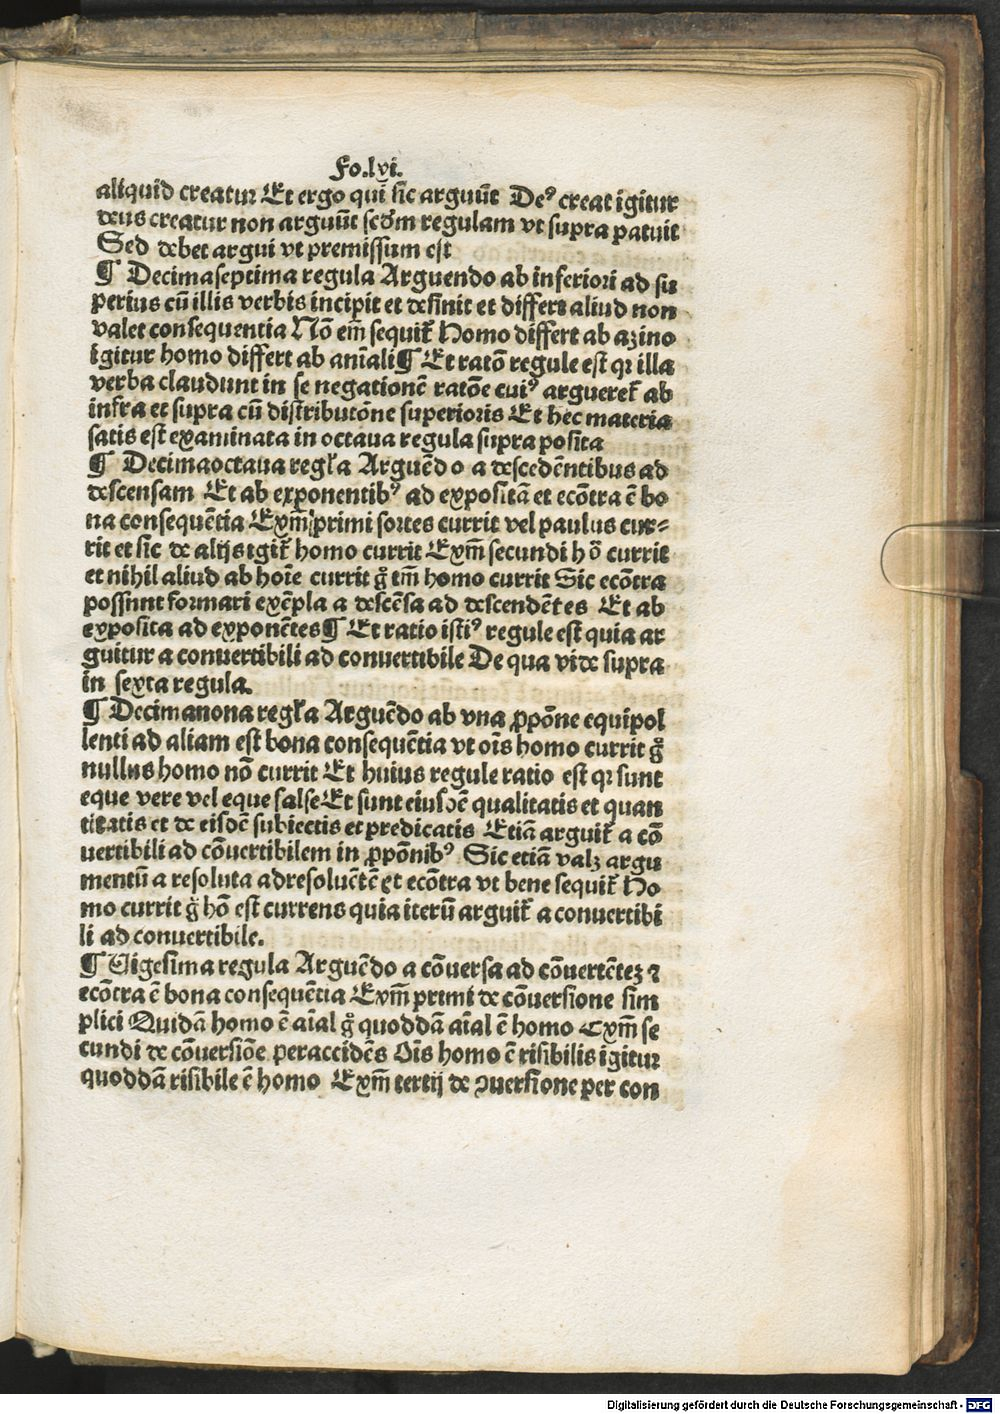 Fo.lvi.
aliquid creatur Et ergo qui sic arguūt Deꝰ creat igitur
deus creatur non arguūt scōm regulam vt supra patuit
Sed debet argui vt premissum est
¶ Decimaseptima regula Arguendo ab inferiori ad su
perius cū illis verbis incipit et desinit et differt aliud non
valet consequentia Nō em̄ sequit᷑ Homo differt ab azino
igitur homo differt ab aniali ¶ Et ratō regule est qꝛ illa
verba claudunt in se negationē ratōe cuiꝰ argueret᷑ ab
infra et supra cū distributōne superioris Et hec materia
satis est examinata in octaua regula supra posita
¶ Decimaoctaua regl̄a Arguēdo a descedētibus ad
descensam Et ab exponentibꝰ ad expositā et ecōtra ē bo
na consequētia Exm̄ primi sortes currit vel paulus cur⸗
rit et sic de alijs igit᷑ homo currit Exm̄ secundi hō currit
et nihil aliud ab hoīe currit g̊ tm̄ homo currit Sic ecōtra
possunt formari exēpla a descēsa ad descendētes Et ab
exposita ad exponētes ¶ Et ratio istiꝰ regule est quia ar
guitur a conuertibili ad conuertibile De qua vide supra
in sexta regula.
¶ Decimanona regl̄a Arguēdo ab vna ꝓpōne equipol
lenti ad aliam est bona consequētia vt oīs homo currit g̊
nullus homo nō currit Et huius regule ratio est qꝛ sunt
eque vere vel eque false Et sunt eiusdē qualitatis et quan
titatis et de eisdē subiectis et predicatis Etiā arguit᷑ a cō
uertibili ad cōuertibilem in ꝓpōnibꝰ Sic etiā valꝫ argu
mentū a resoluta ad resoluētē et ecōtra vt bene sequit᷑ Ho
mo currit g̊ hō est currens quia iterū arguit᷑ a conuertibi
li ad conuertibile.
¶ Vigesima regula Arguēdo a cōuersa ad cōuertēteꝫ ⁊
ecōtra ē bona consequētia Exm̄ primi de cōuersione sim
plici Quidā homo ē aīal g̊ quoddā aīal ē homo Exm̄ se
cundi de cōuersiōe peraccidēs Oīs homo ē risibilis igitur
quoddā risibile ē homo Exm̄ tertij de ꝯuersione per con
Digitalisierung gefördert durch die Deutsche Forschungsgemeinschaft - DFG